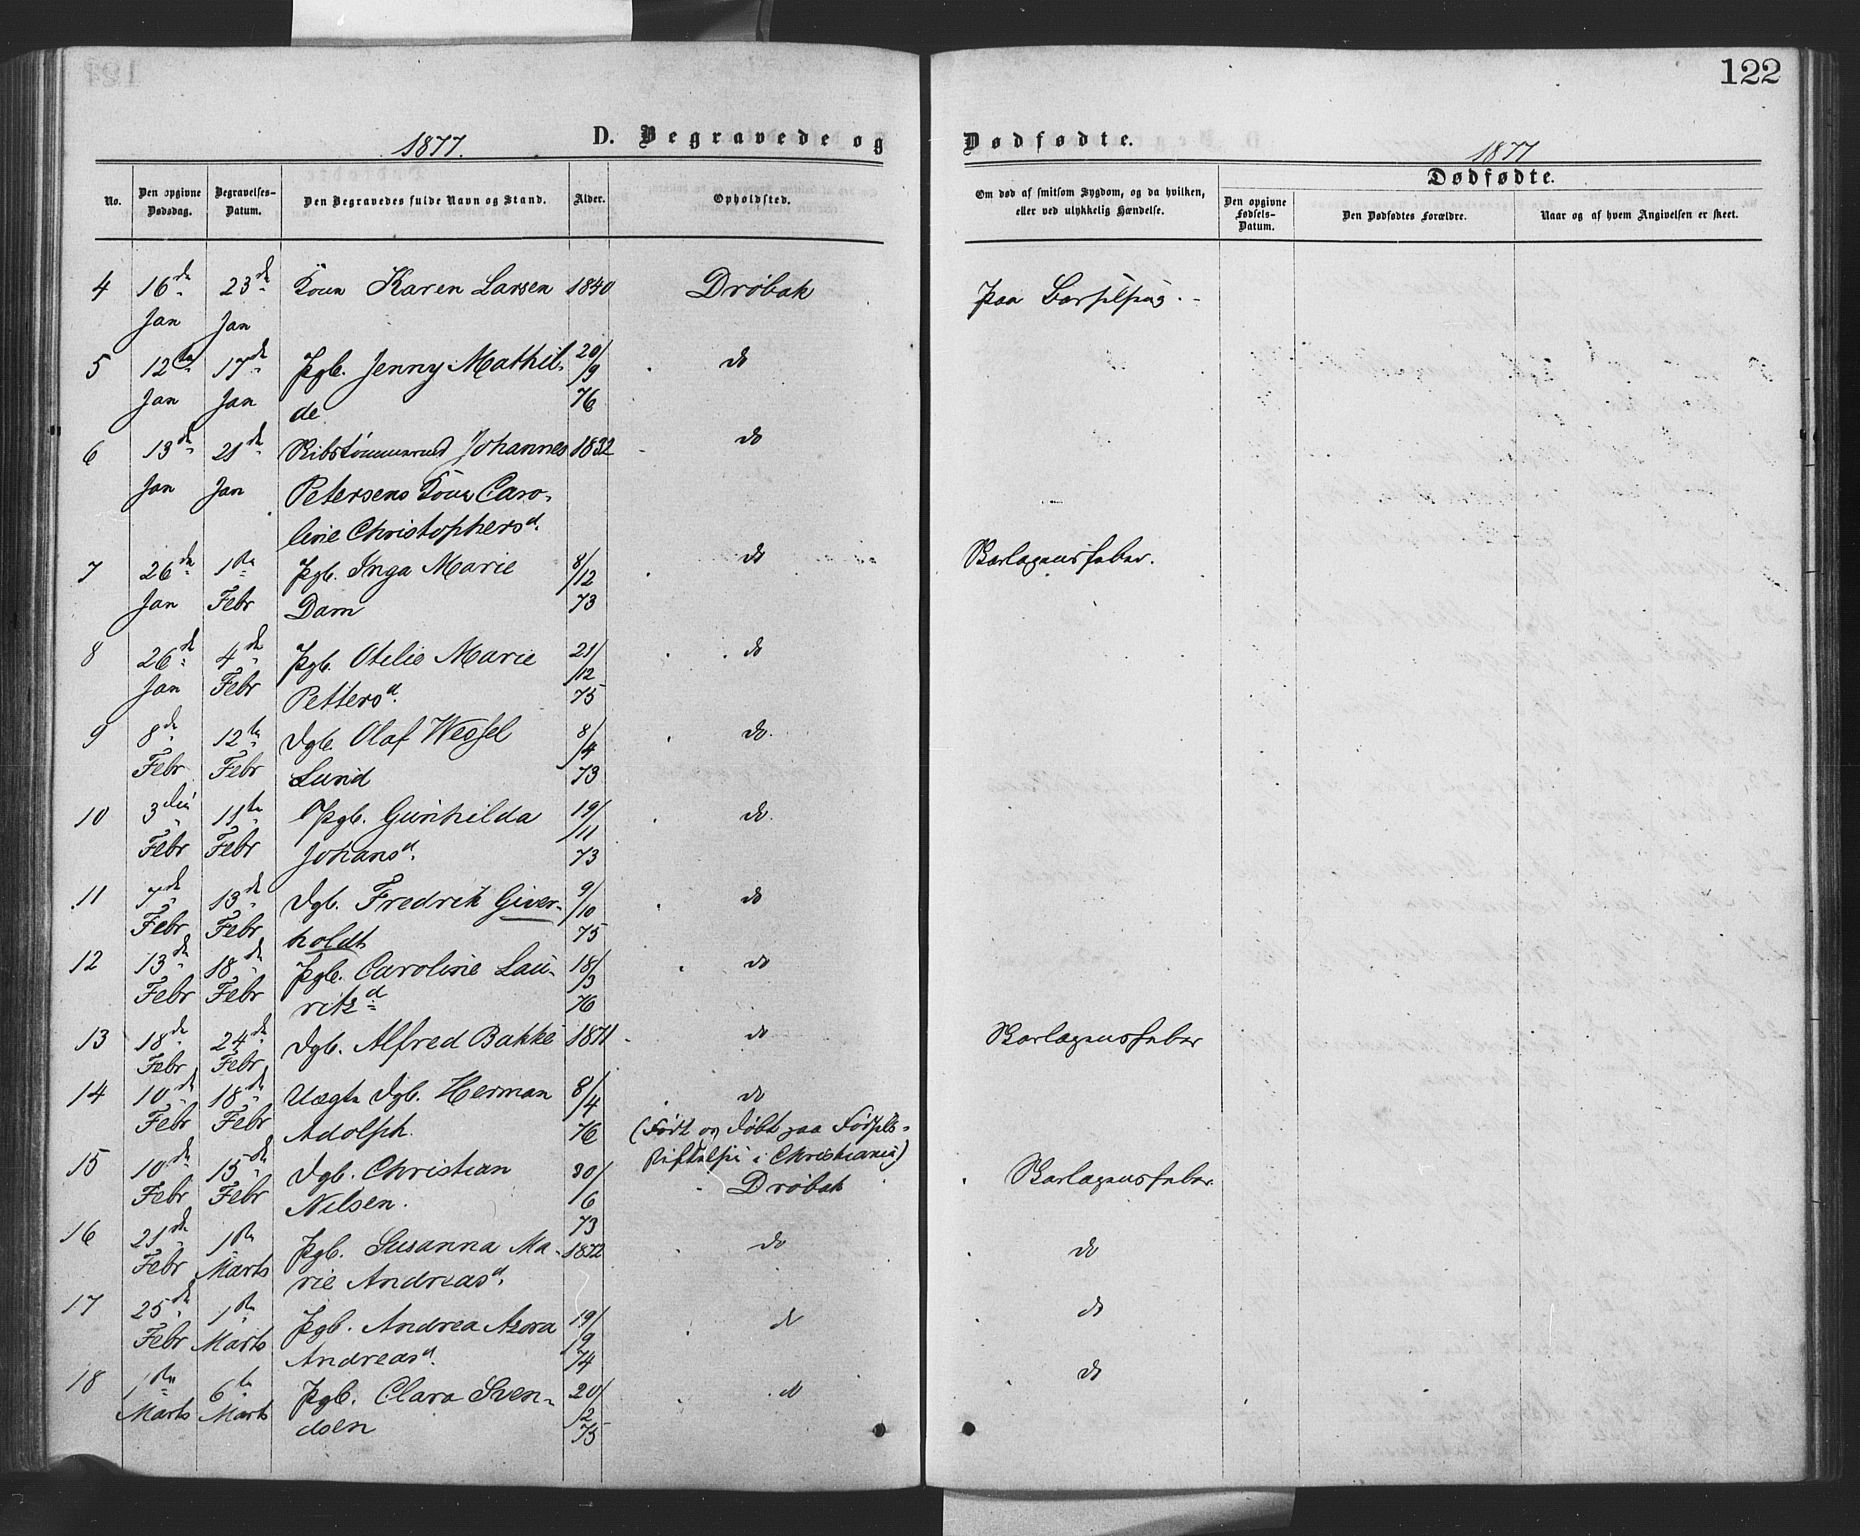 122
1877.
D. Begravede og
Dødfødte.
1877
No.
Den opgivne Dødsdag.
Begravelses-Datum.
Den Begravedes fulde Navn og Stand.
Alder.
Opholdsted.
Om død af smitsom Sygdom, og da hvilken, eller ved ulykkelig Hændelse.
Dødfødte.
Den opgivne Fødsels-Datum.
Den Dødfødtes Forældre.
Naar og af hvem Angivelsen er skeet.
4 16de Jan 23de Jan Kone Karen Larsen 1840 Drøbak paa Barselseng.
5 12te Jan 17de Jan Pgb. Jenny Mathil-
de 20/9 76 do
6 13de Jan 21de Jan Johannes 1832 do
Petersens Kone Caro-
line Christophersd.
7 26de Jan 1ste Febr Pgb. Inga Marie
Dam 8/12 73 do Skarlagensfeber.
8 26de Jan 4de Febr Pgb. Otelie Marie
Pettersd. 21/12 75 do
9 8de Febr 12te Febr Dgb. Olaf Wessel
Lund 8/4 73 do.
10 3die Febr 11te Febr Pgb. Gunhilda
Johansd. 19/11 73 do.
11 7de Febr 13de Febr Dgb. Fredrik Giver-
holdt 9/10 75 do
12 13de Febr 18de Febr Pgb. Caroline Lau-
ritzd 18/3 76 do
13 18de Febr 24de Febr Dgb. Alfred Bakke 1871 do Skarlagensfeber
14 10de Febr 18de Febr Uægte Dgb. Herman
Adolph. 8/4 76 do
(Født og døbt paa Fødsels-
stiftelsen i Christiania)
15 10de Febr 15de Febr Dgb. Christian
Nilsen. 30/6 73 Drøbak Skarlagensfeber
16 21de Febr 1ste Marts Pgb. Susanna Ma-
rie Andreasd. 1872 do do
17 25de Febr 1ste Marts Pgb. Andrea Azora
Andreasd. 19/9 74 do do
18 1ste Marts 6te Marts Pgb. Clara Sven-
dsen 20/2 75 do do